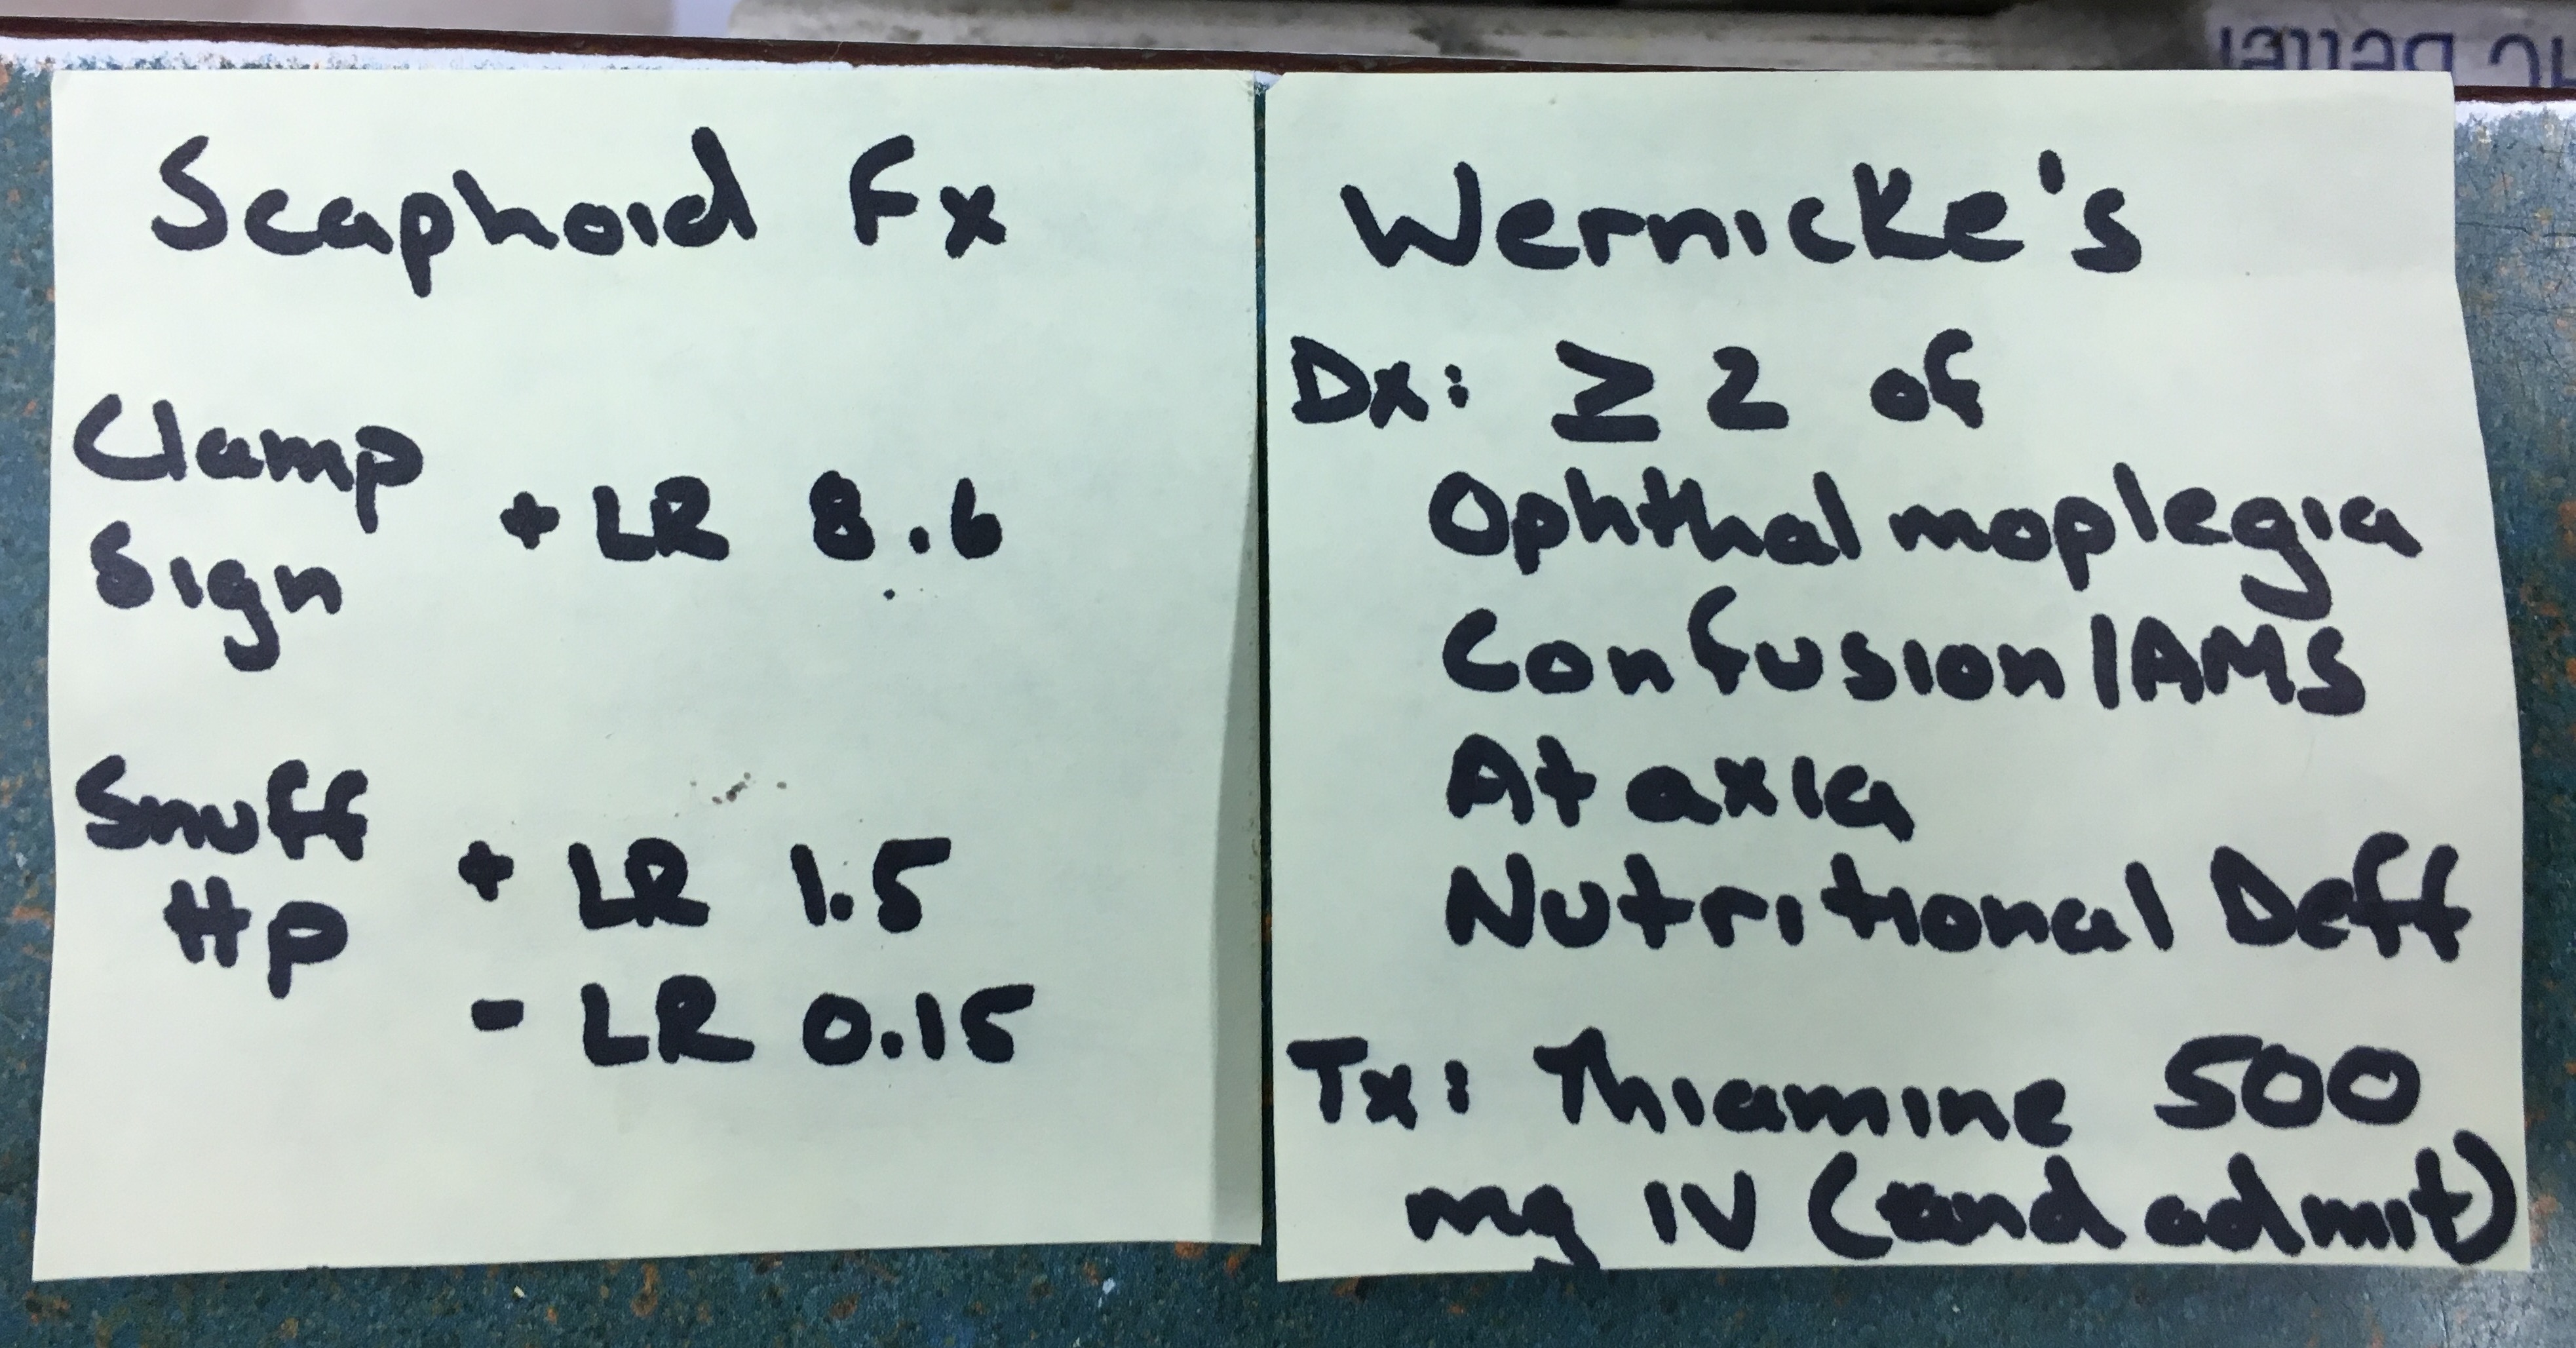 Scaphoid Fx
Clamp
Sign
+ LR 8.6
Snuff
Hp
+ LR 1.5
- LR 0.15
Wernicke's
Dx: ≥ 2 of
Ophthalmoplegia
Confusion/AMS
Ataxia
Nutritional Deff
Tx: Thiamine 500
mg IV (and admit)